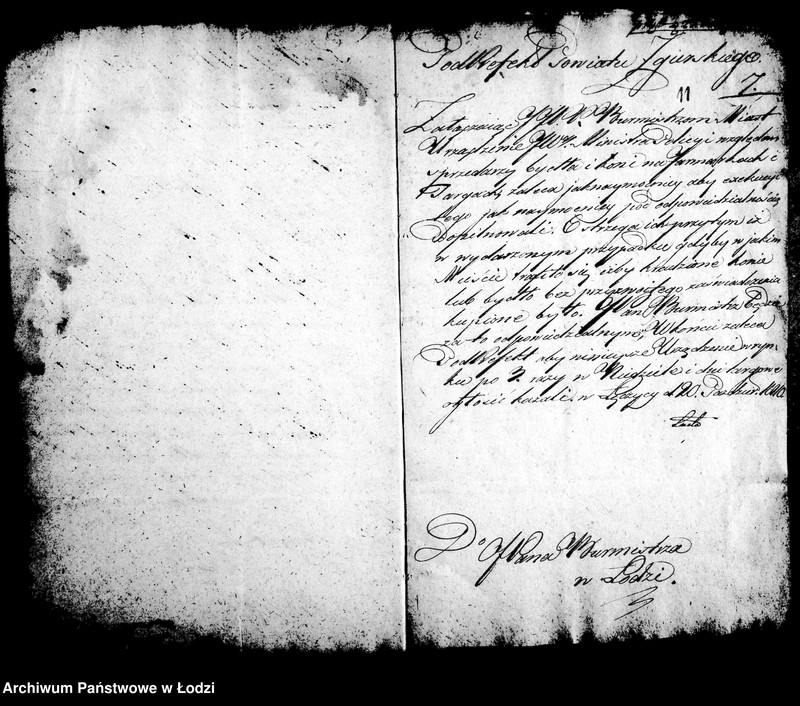 PodPrefekt Powiatu Zgierskiego.
11 7.
Załączaiąc JW. P. Burmistrzom Miast
Urządzenie JWo. Ministra Policyi względem
sprzedarzy bydła i koni na Jarmarkach i
Targach, zaleca jaknaymocniey aby exekucyi
tego jak naymocniey pod odpowiedzialnością
Dopilnowali. Ostrzega ich przytym iż
w wydarzonym przypadku gdyby w jakim
Mieście trafiło się, iżby kradzione konie
lub bydło bez przyzwoitego zaświadczenia
kupione było. JPan Burmistrz Będzie
za to odpowiedzialnym, W końcu zaleca
PodPrefekt aby ninieysze Urządzenie w ryn-
ku po 3. razy w Niedziele i dni targowe
ogłosić kazali. w Łęczycy d. 20. Paździer.
Do JPana Burmistrza
w Łodzi.
Archiwum Państwowe w Łodzi